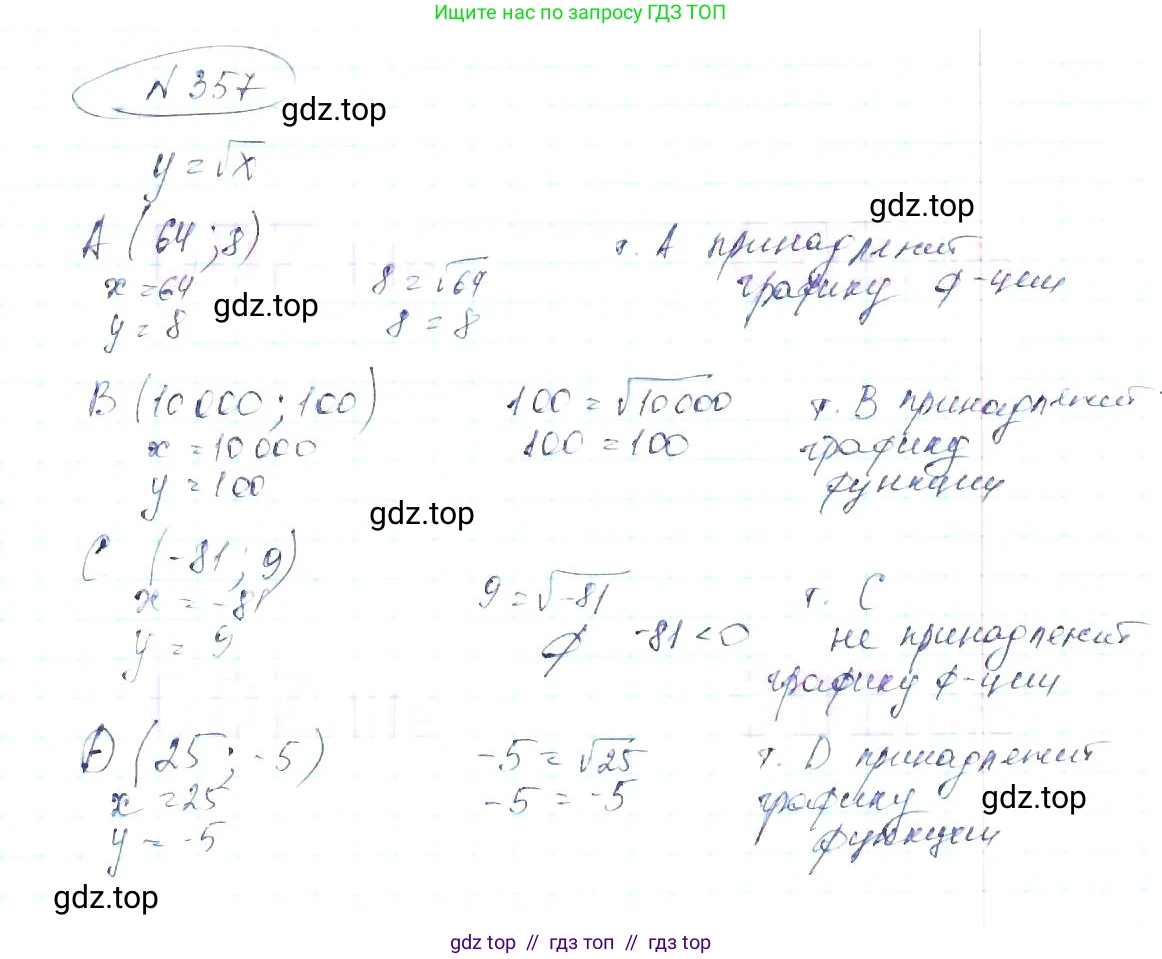 Ищите нас по запросу ГДЗ ТОП
N 357
gdz.top
y = √x
gdz.top
A (64 ; 8)
т. A принадлежит
x = 64
8 = √64
графику ф-ции
gdz.top
y = 8
8 = 8
B (10 000 ; 100)
100 = √10 000
т. B принадлежит
x = 10 000
100 = 100
графику
y = 100
функции
gdz.top
C (-81 ; 9)
x = -81
9 = √-81
т. C
y = 9
∅ -81 < 0
не принадлежит
графику ф-ции
D (25 ; -5)
-5 = √25
т. D принадлежит
x = 25
-5 = -5
графику
gdz.top
y = -5
функции
gdz.top
gdz top // гдз топ // gdz top